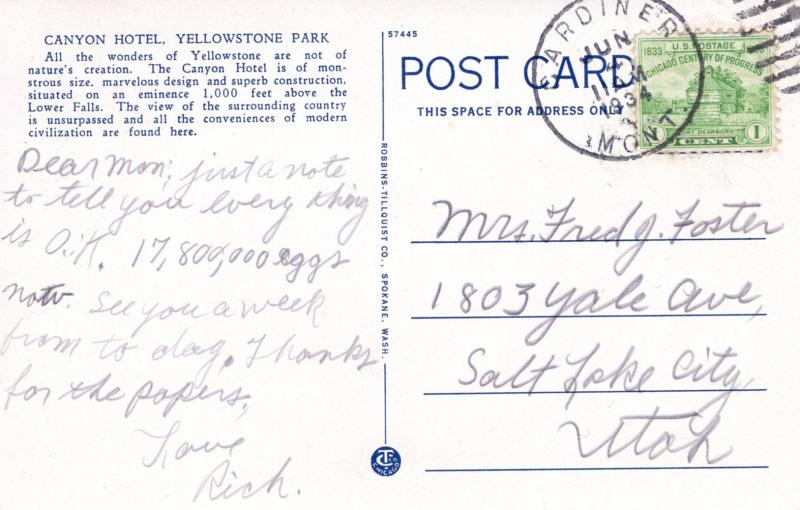 CANYON HOTEL, YELLOWSTONE PARK
All the wonders of Yellowstone are not of
nature's creation. The Canyon Hotel is of mon-
strous size, marvelous design and superb construction,
situated on an eminence 1,000 feet above the
Lower Falls. The view of the surrounding country
is unsurpassed and all the conveniences of modern
civilization are found here.
Dear Mon; just a note
to tell you every thing
is O.K. 17,800,000 eggs
now. See you a week
from to day. Thanks
for the papers,
Love
Rich.
57445
POST CARD
THIS SPACE FOR ADDRESS ONLY
ROBBINS-TILLQUIST CO., SPOKANE, WASH.
CT CO
CHICAGO
GARDINER
JUN
11 AM
1934
MONT.
U.S. POSTAGE
1833
CHICAGO CENTURY OF PROGRESS
FORT DEARBORN
1 CENT 1
Mrs. Fred J. Foster
1803 Yale Ave,
Salt Lake City,
Utah